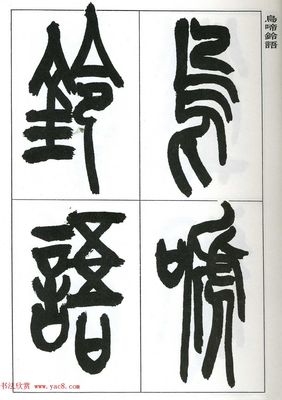 烏啼鈴語
烏啼
鈴語
书法欣赏 www.yac8.com